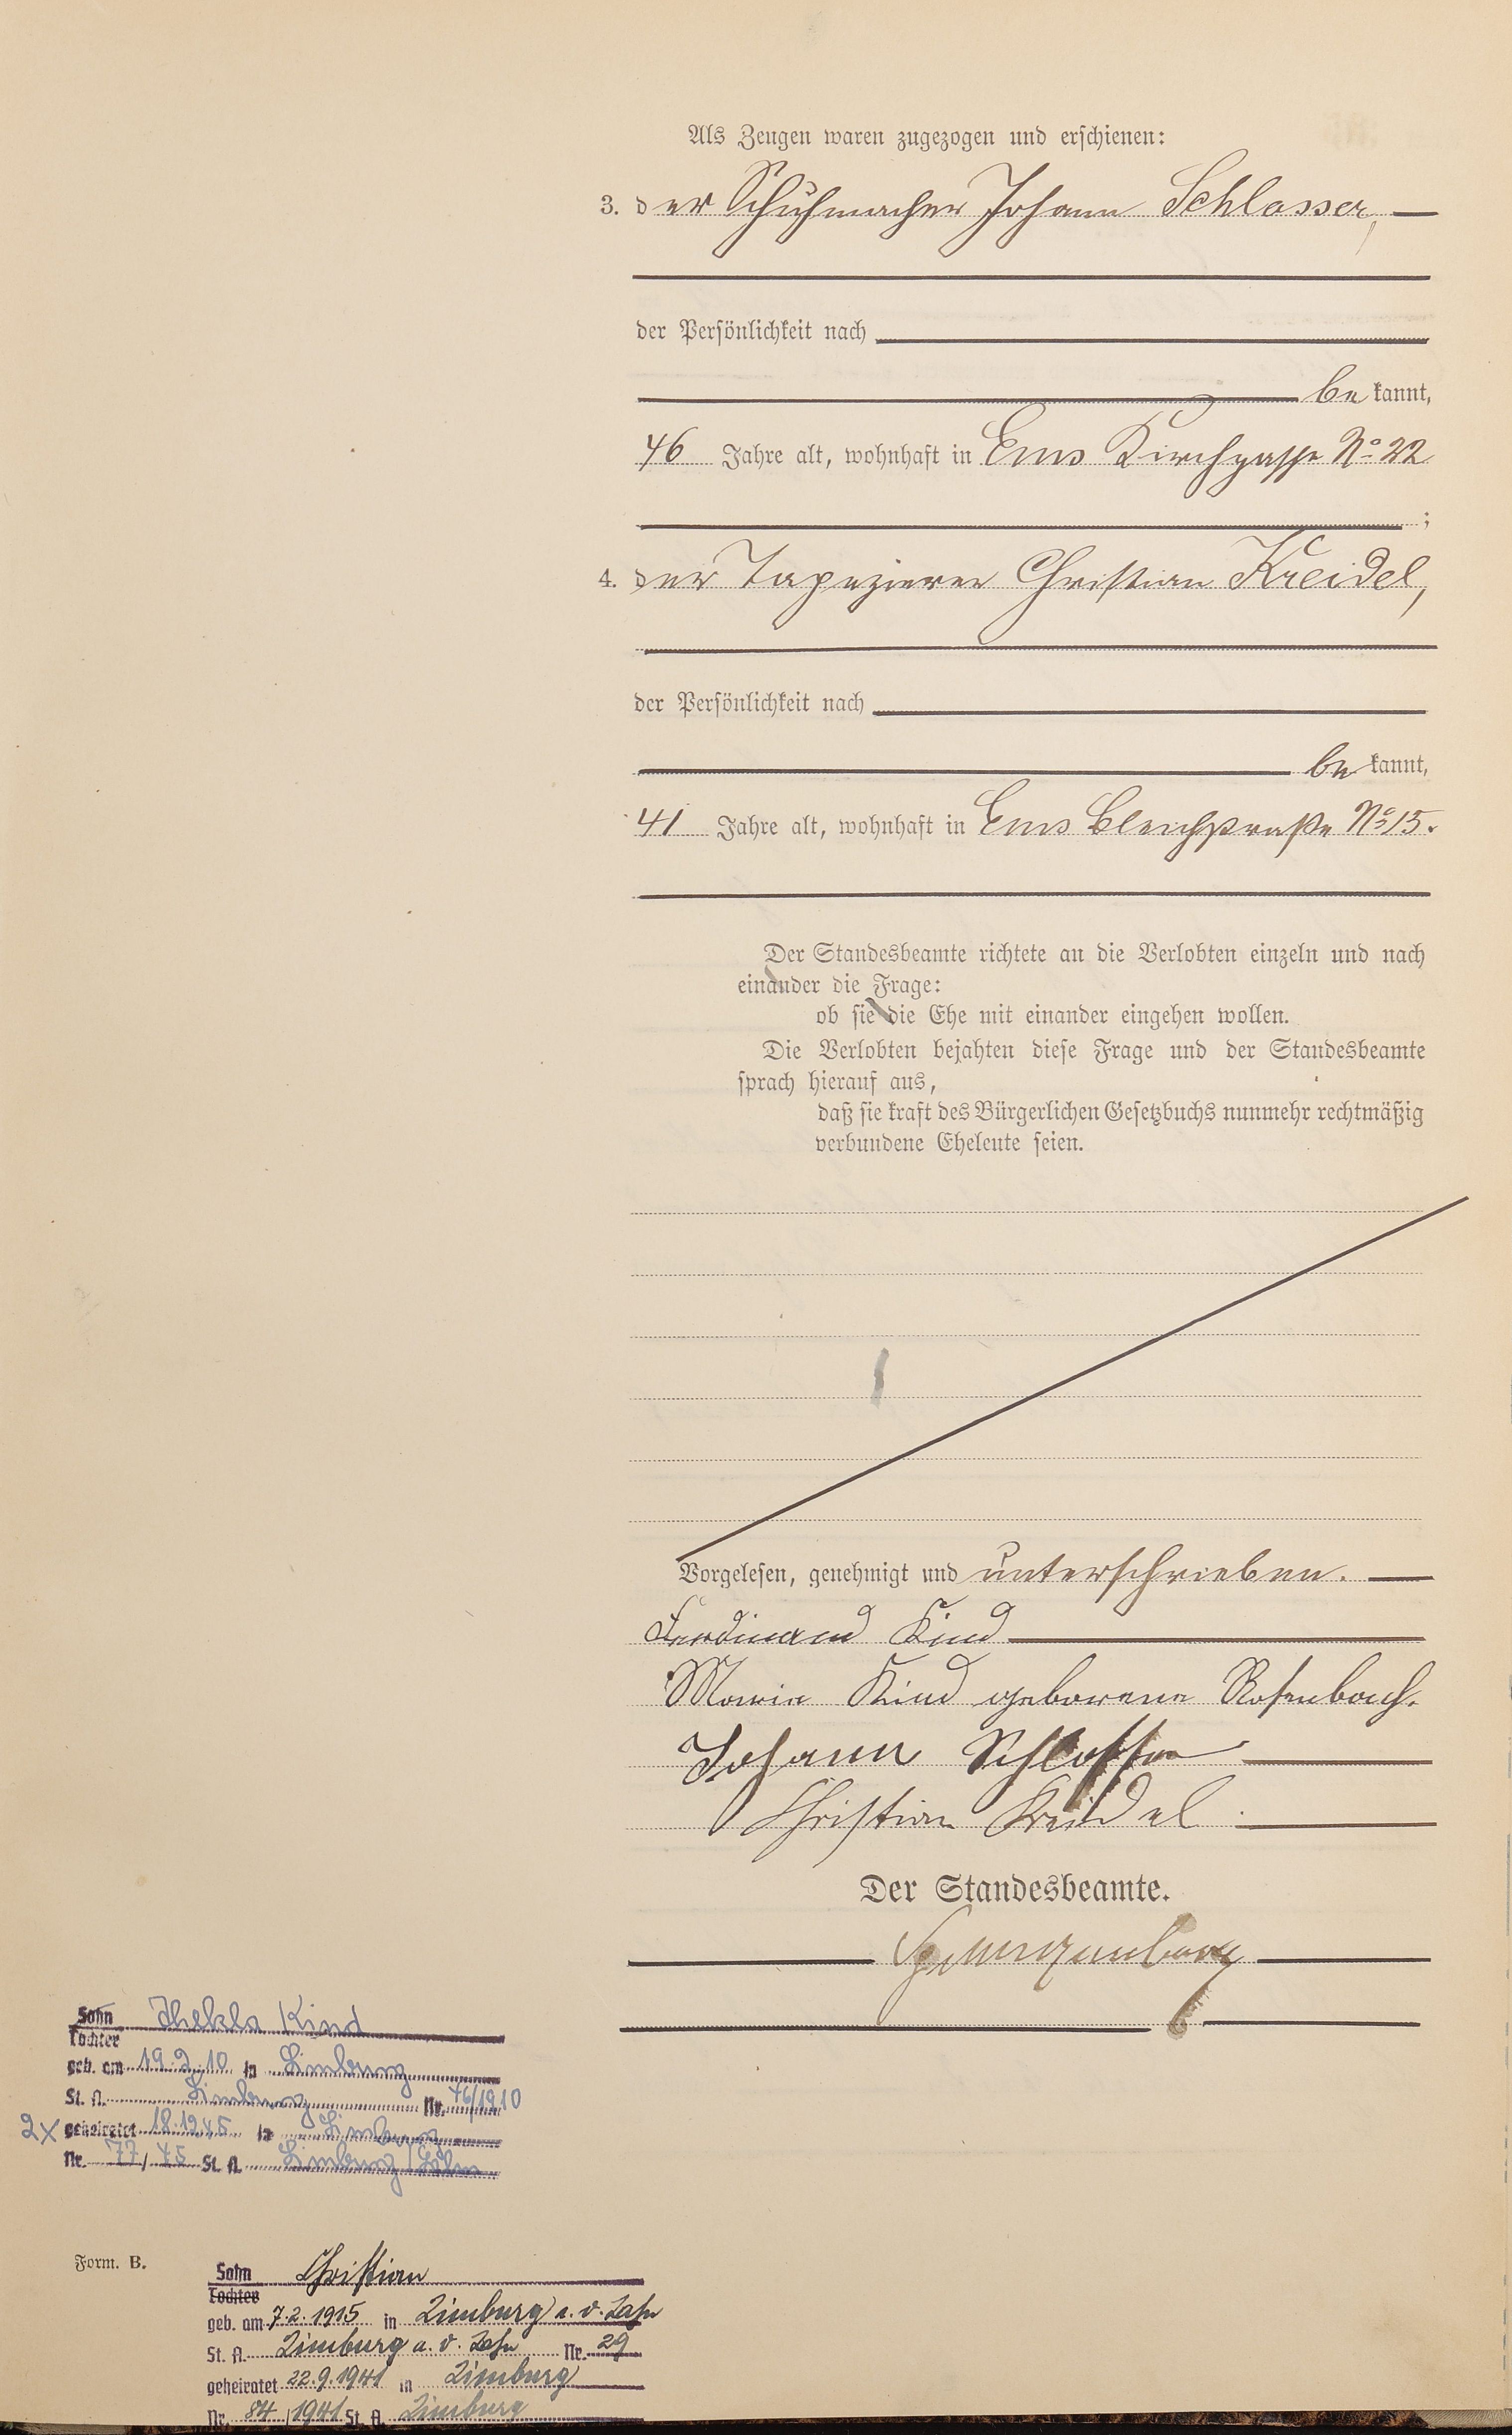 Als Zeugen waren zugezogen und erschienen:
3. der Schuhmacher Johann Schlosser,
der Persönlichkeit nach
be kannt,
46 Jahre alt, wohnhaft in Ems Kirchgasse No 22
;
4. der Tapezierer Christian Kreidel,
der Persönlichkeit nach
be kannt,
41 Jahre alt, wohnhaft in Ems Bleichstraße No 15.
Der Standesbeamte richtete an die Verlobten einzeln und nach
einander die Frage:
ob sie die Ehe mit einander eingehen wollen.
Die Verlobten bejahten diese Frage und der Standesbeamte
sprach hierauf aus,
daß sie kraft des Bürgerlichen Gesetzbuchs nunmehr rechtmäßig
verbundene Eheleute seien.
Vorgelesen, genehmigt und unterschrieben.
Ferdinand Kind
Maria Kind geborene Rosenbach.
Johann Schlosser
Christian Kreidel
Der Standesbeamte.
Sohn Thekla Kind
Tochter
geb. am 19.2.10 in Limburg
St. A. Limburg Nr. 76/1910
2x geheiratet 18.12.45 in Limburg
Nr. 77/45 St. A. Limburg/Lahn
Form. B.
Sohn Christian
Tochter
geb. am 7.2.1915 in Limburg a. d. Lahn
St. A. Limburg a. d. Lahn Nr. 29
geheiratet 22.9.1941 in Limburg
Nr. 84/1941 St. A. Limburg